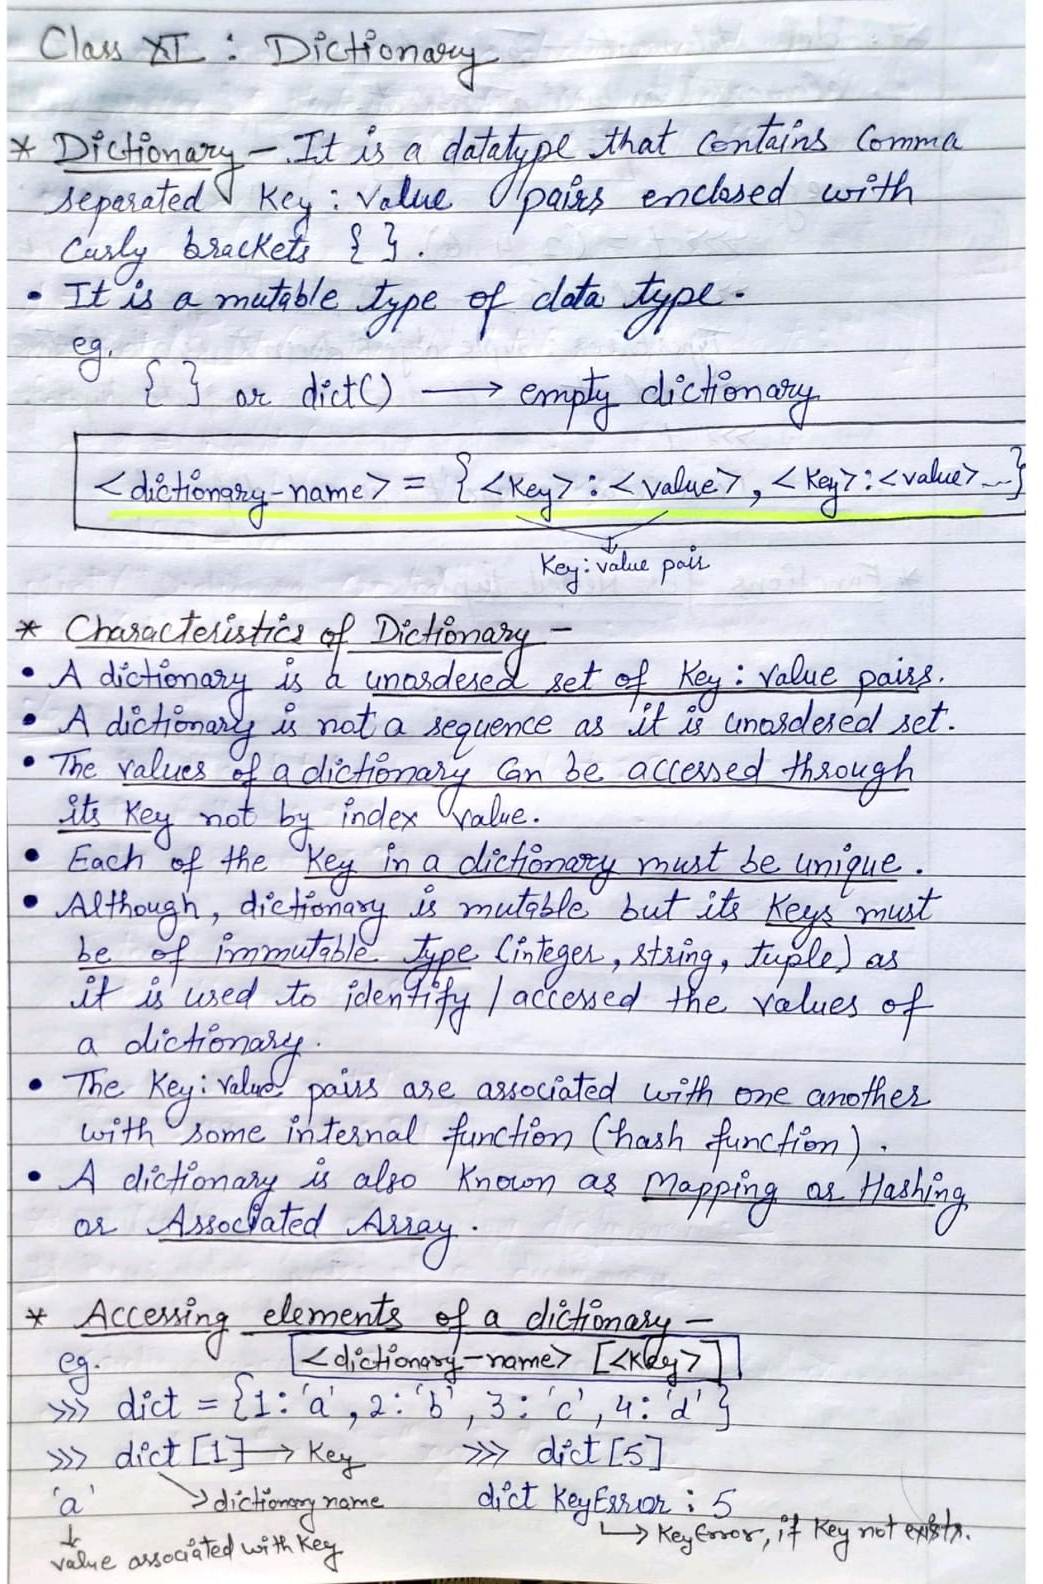 Class XI : Dictionary
* Dictionary - It is a datatype that contains Comma
separated Key : Value pairs enclosed with
Curly brackets { } .
• It is a mutable type of data type.
eg.
{ } or dict() → empty dictionary
<dictionary-name> = { <Key> : <value>, <Key>:<value>...}
Key:value pair
* Characteristics of Dictionary -
• A dictionary is a unordered set of Key : value pairs.
• A dictionary is not a sequence as it is unordered set.
• The values of a dictionary can be accessed through
its Key not by index value.
• Each of the Key in a dictionary must be unique.
• Although, dictionary is mutable but its Keys must
be of immutable type (integer, string, tuple) as
it is used to identify / accessed the values of
a dictionary.
• The Key : Value pairs are associated with one another
with some internal function (hash function).
• A dictionary is also Known as Mapping or Hashing
or Associated Array.
* Accessing elements of a dictionary -
eg. <dictionary-name> [<Key>]
>>> dict = {1:'a', 2:'b', 3:'c', 4:'d'}
>>> dict [1] → Key >>> dict [5]
'a' → dictionary name dict KeyError : 5
↓ value associated with Key → KeyError, if Key not exists.